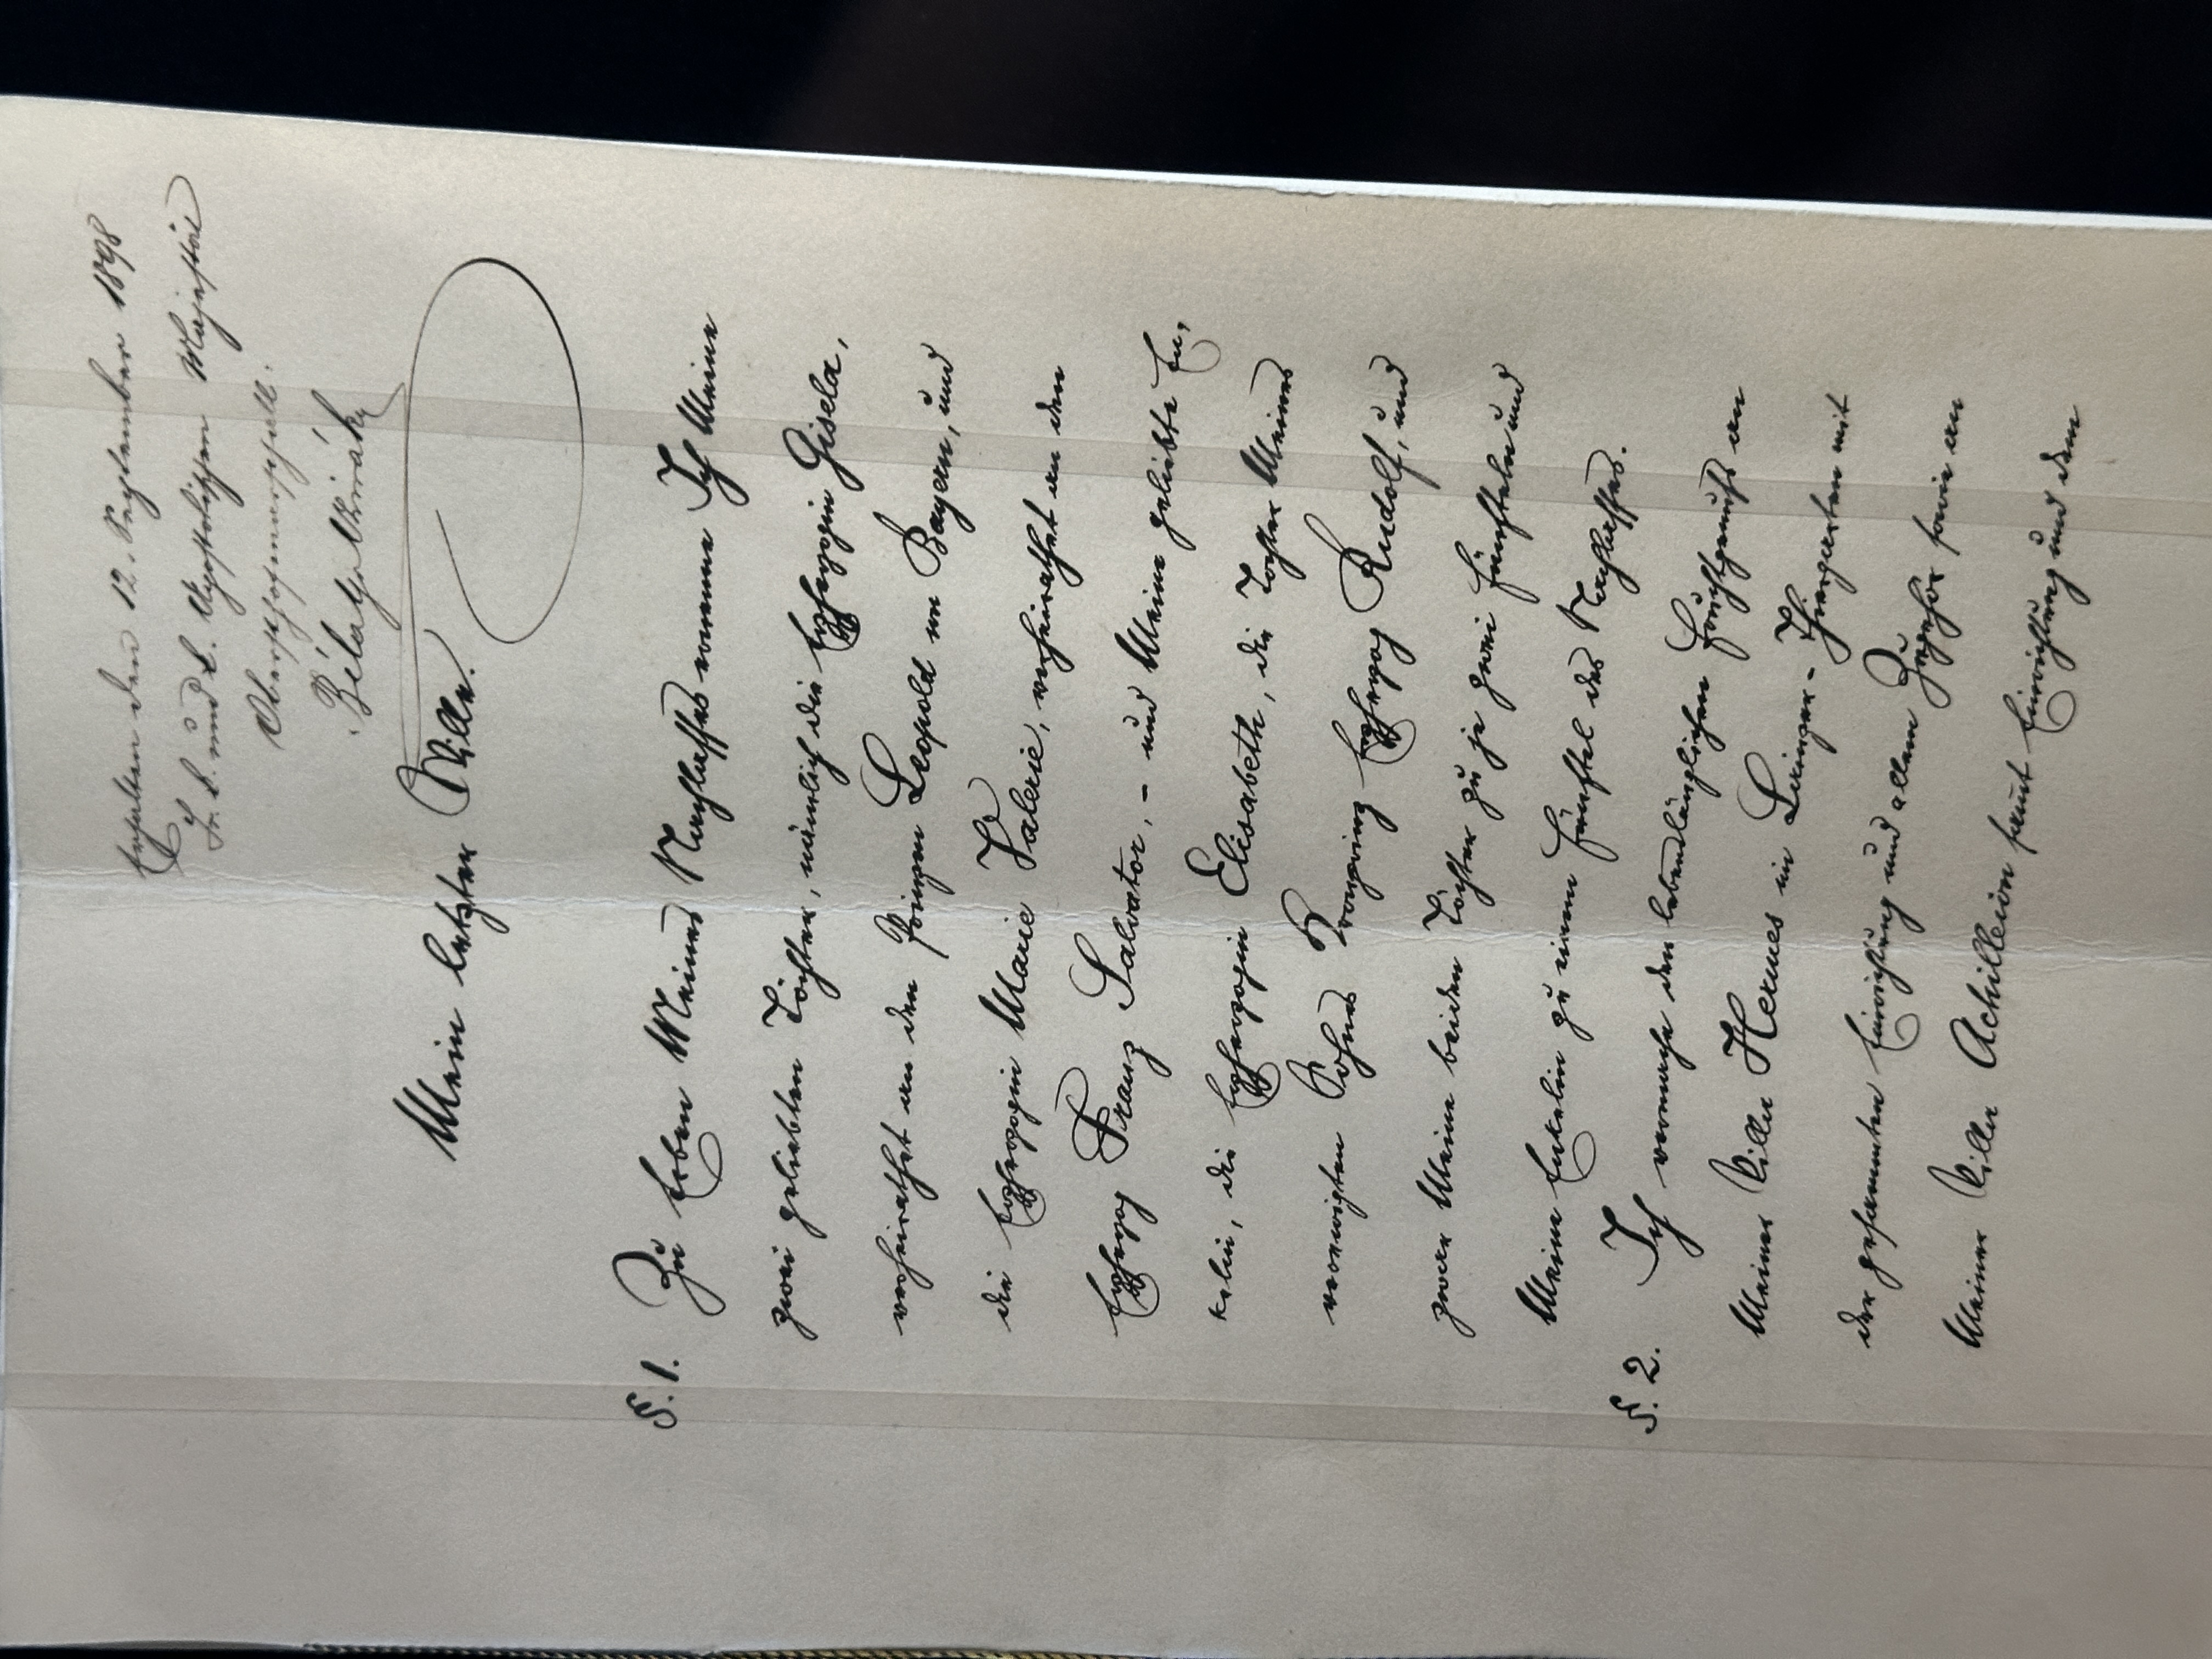 Erhalten den 12. September 1898
Sr. k. und k. Apostolischen Majestät
Obersthofmarschall:
Béla
Mein letzter Wille.
§. 1. Zu Erben Meines Nachlasses ernenne Ich Meine
zwei geliebten Töchter, nämlich die Erzherzogin Gisela,
verheirathet an den Prinzen Leopold von Bayern, und
die Erzherzogin Marie Valerie, verheirathet an den
Erzherzog Franz Salvator, - und Meine geliebte En,
kelin, die Erzherzogin Elisabeth, die Tochter Meines
verewigten Sohnes Kronprinz Erzherzog Rudolf, und
zwar Meine beiden Töchter zu je zwei Fünfteln und
Meine Enkelin zu einem Fünftel des Nachlasses.
§. 2. Ich vermache den lebenslänglichen Fruchtgenuß an
Meiner Villa Hermes im Lainzer-Thiergarten mit
der gesammten Einrichtung und allem Zugehör sowie an
Meiner Villa Achilleion sammt Einrichtung und dem